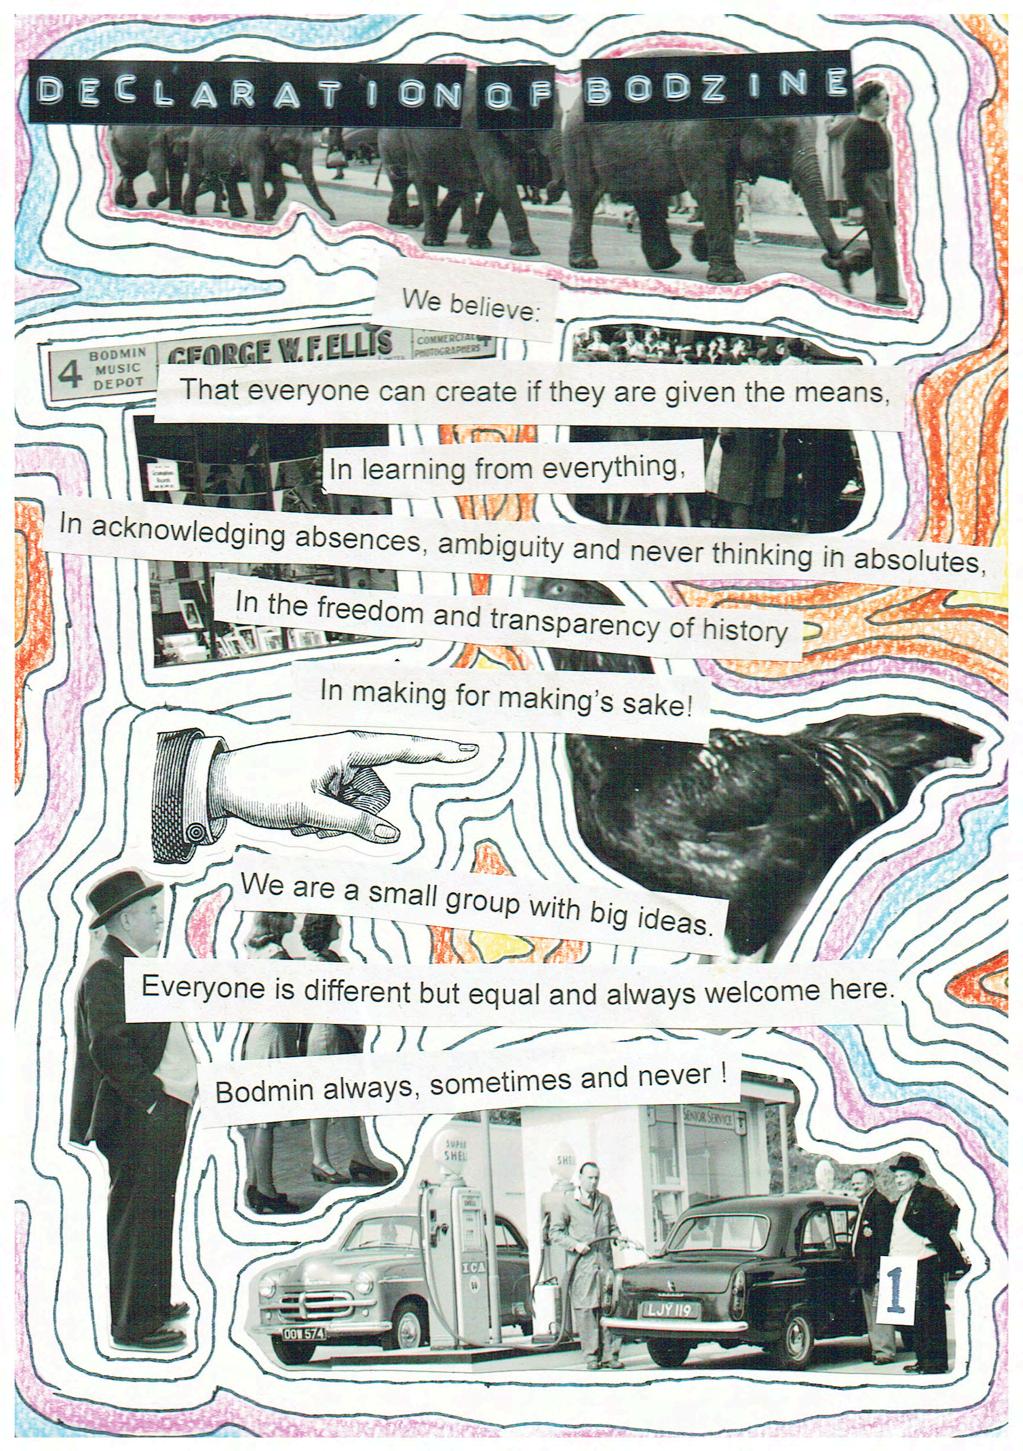 DECLARATION OF BODZINE
We believe:
4 BODMIN MUSIC DEPOT
GEORGE W. F. ELLIS
COMMERCIAL PHOTOGRAPHERS
4
That everyone can create if they are given the means,
In learning from everything,
In acknowledging absences, ambiguity and never thinking in absolutes,
In the freedom and transparency of history
In making for making's sake!
We are a small group with big ideas.
Everyone is different but equal and always welcome here.
Bodmin always, sometimes and never !
SENIOR SERVICE
SUPER SHELL
SHELL
ICA
LJY 119
OOW 574
1